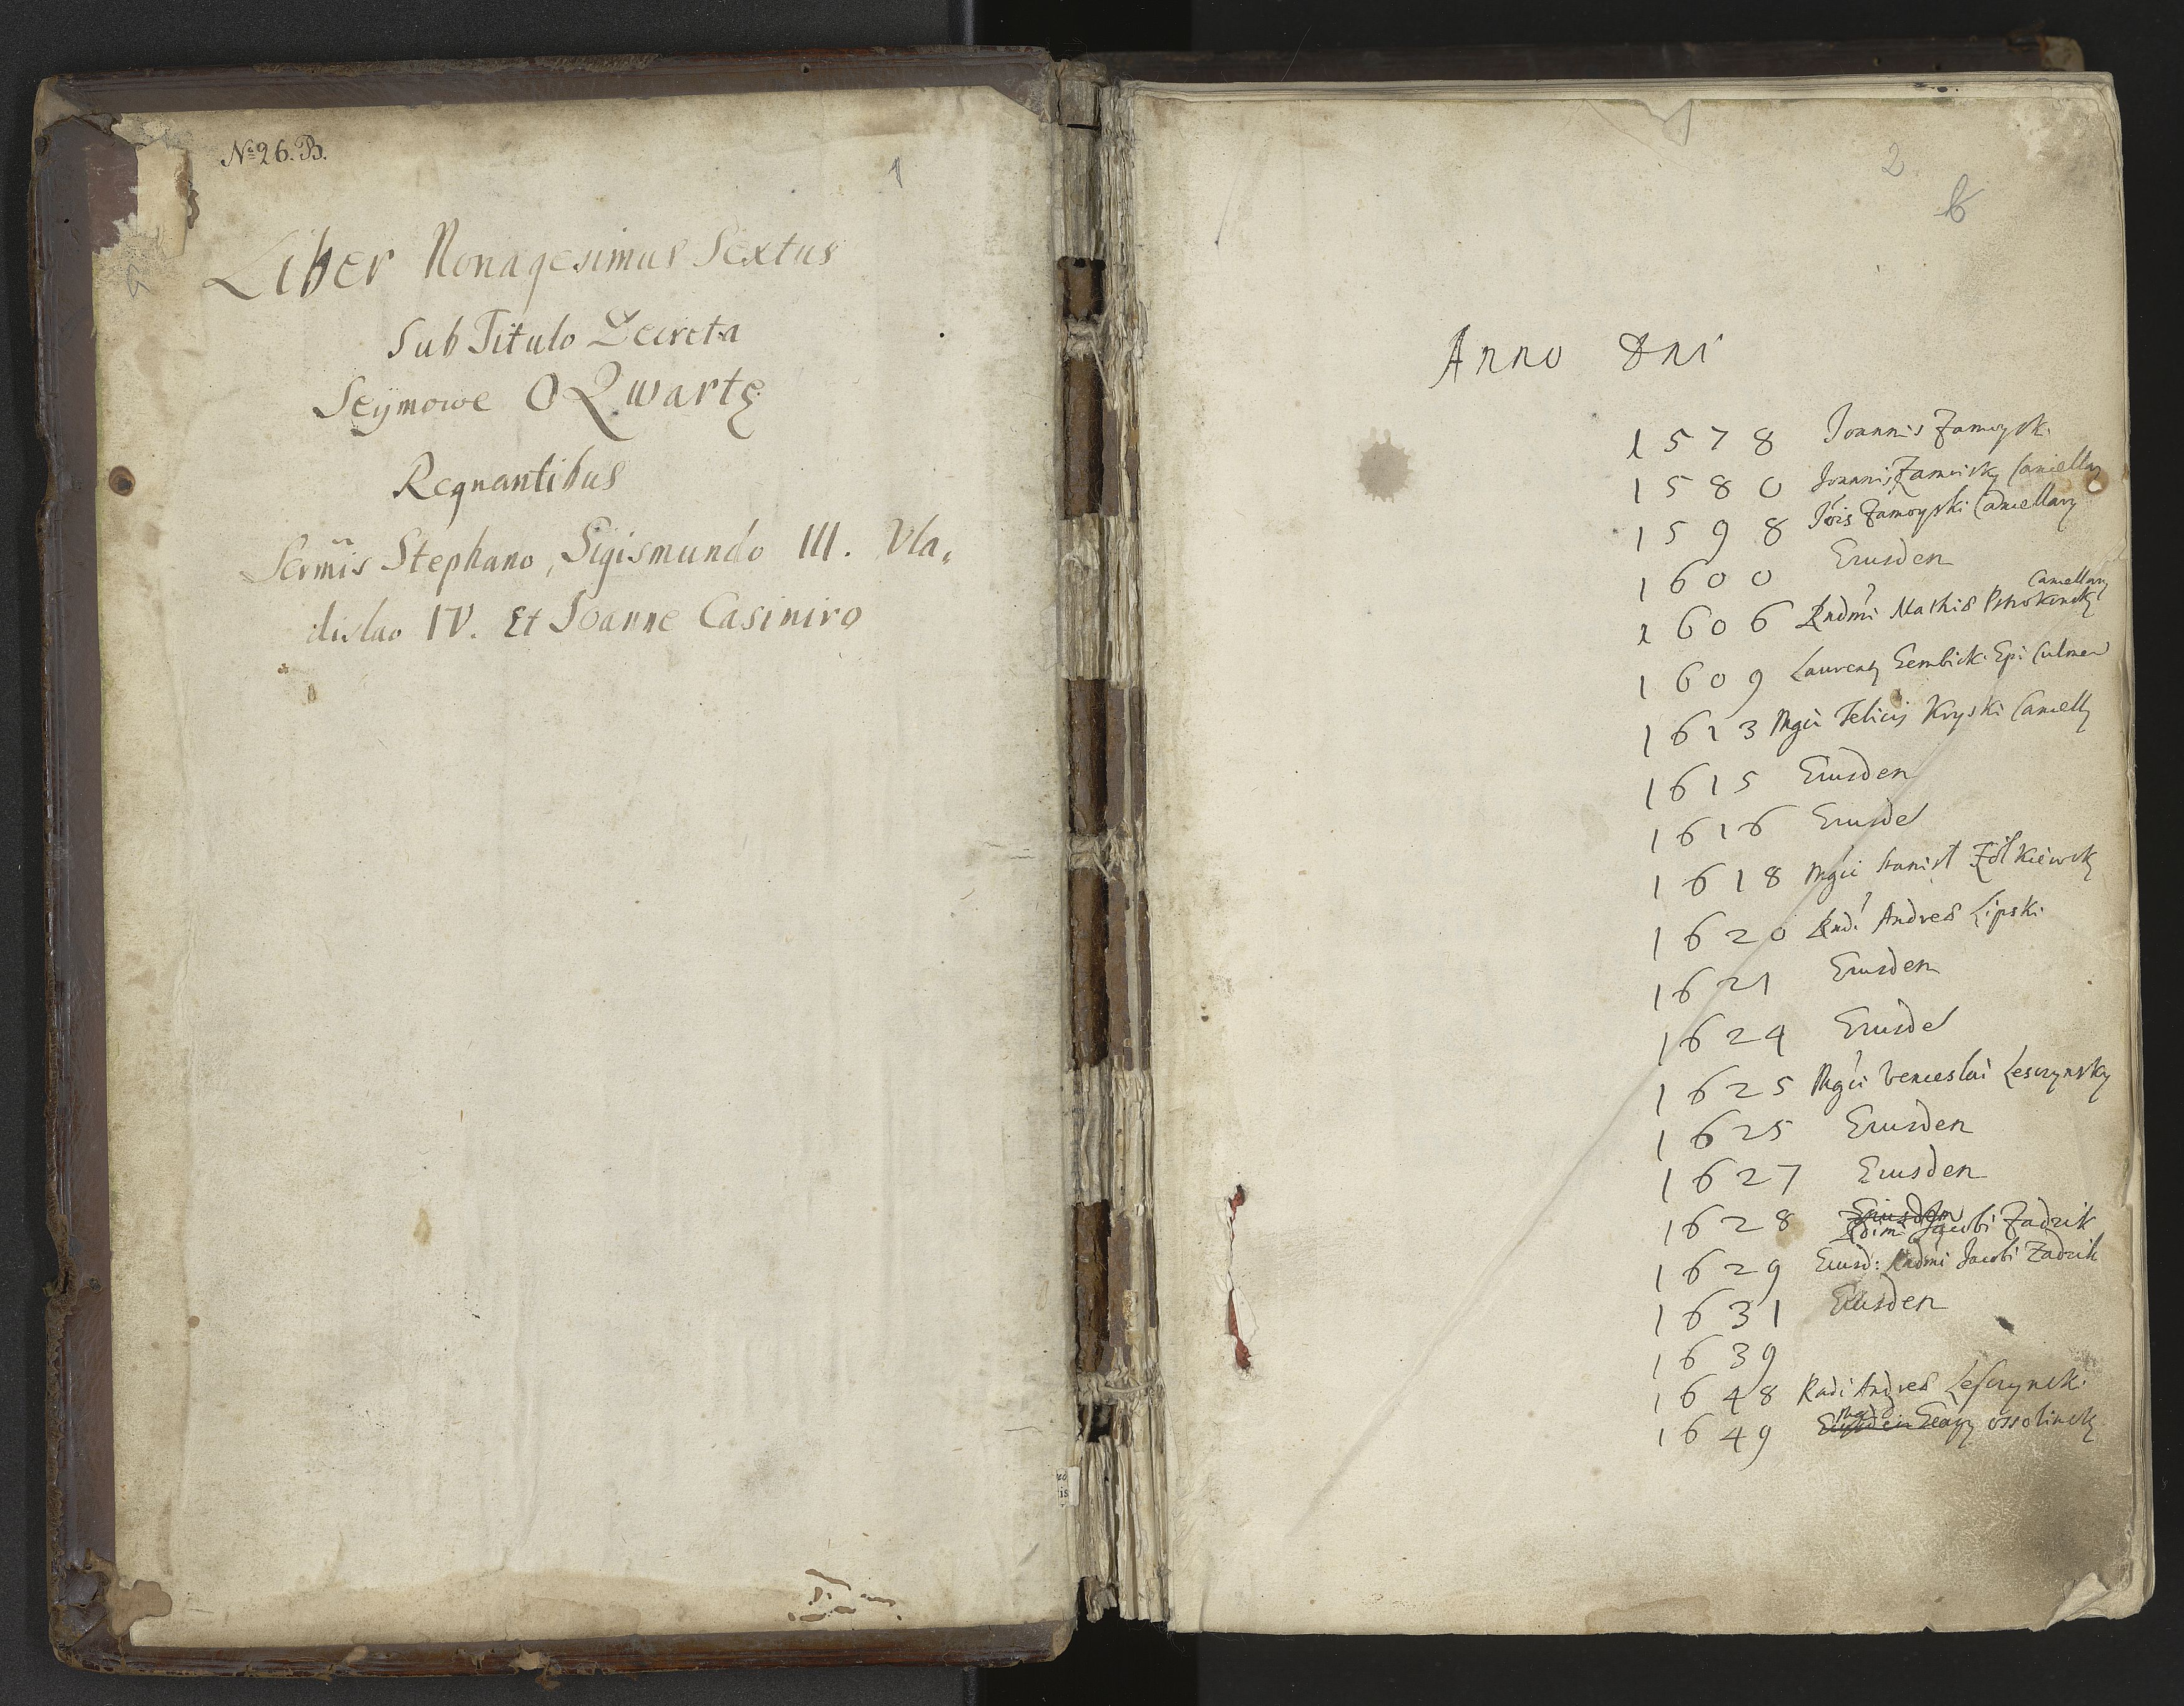 No 26. B.
1
Liber Nonagesimus Sextus
Sub Titulo Decreta
Seymowe O Qwartę
Regnantibus
Sermis Stephano, Sigismundo III. Vla,
dislao IV. Et Joanne Casimiro
2
Anno Dni
1578 Joannis Zamoysk.
1580 Joannis Zamoisky Cancellary
1598 Jois Zamoyski Cancellary
1600 Eiusdem
Cancellary
1606 Rndmi Mathiae Pstrokonsky
1609 Laurenty Gembick. Epi: Culmen
1613 Mgci Felicis Kryski Cancell
1615 Eiusdem
1616 Eiusde
1618 Mgci Stanisl Zółkiewsky
1620 Rnd. Andreae Lipski.
1621 Eiusdem
1624 Eiusde
1625 Mgci Venceslai Lesczynsky
1625 Eiusdem
1627 Eiusdem
1628 Eiusdem
Rdimi Jacobi Zadzik
1629 Eiusd: Rndmi Jacobi Zadzik
1631 Eiusdem
1639
1648 Radi Andreae Lesczynsk.
1649 Georgy Ossolinsky